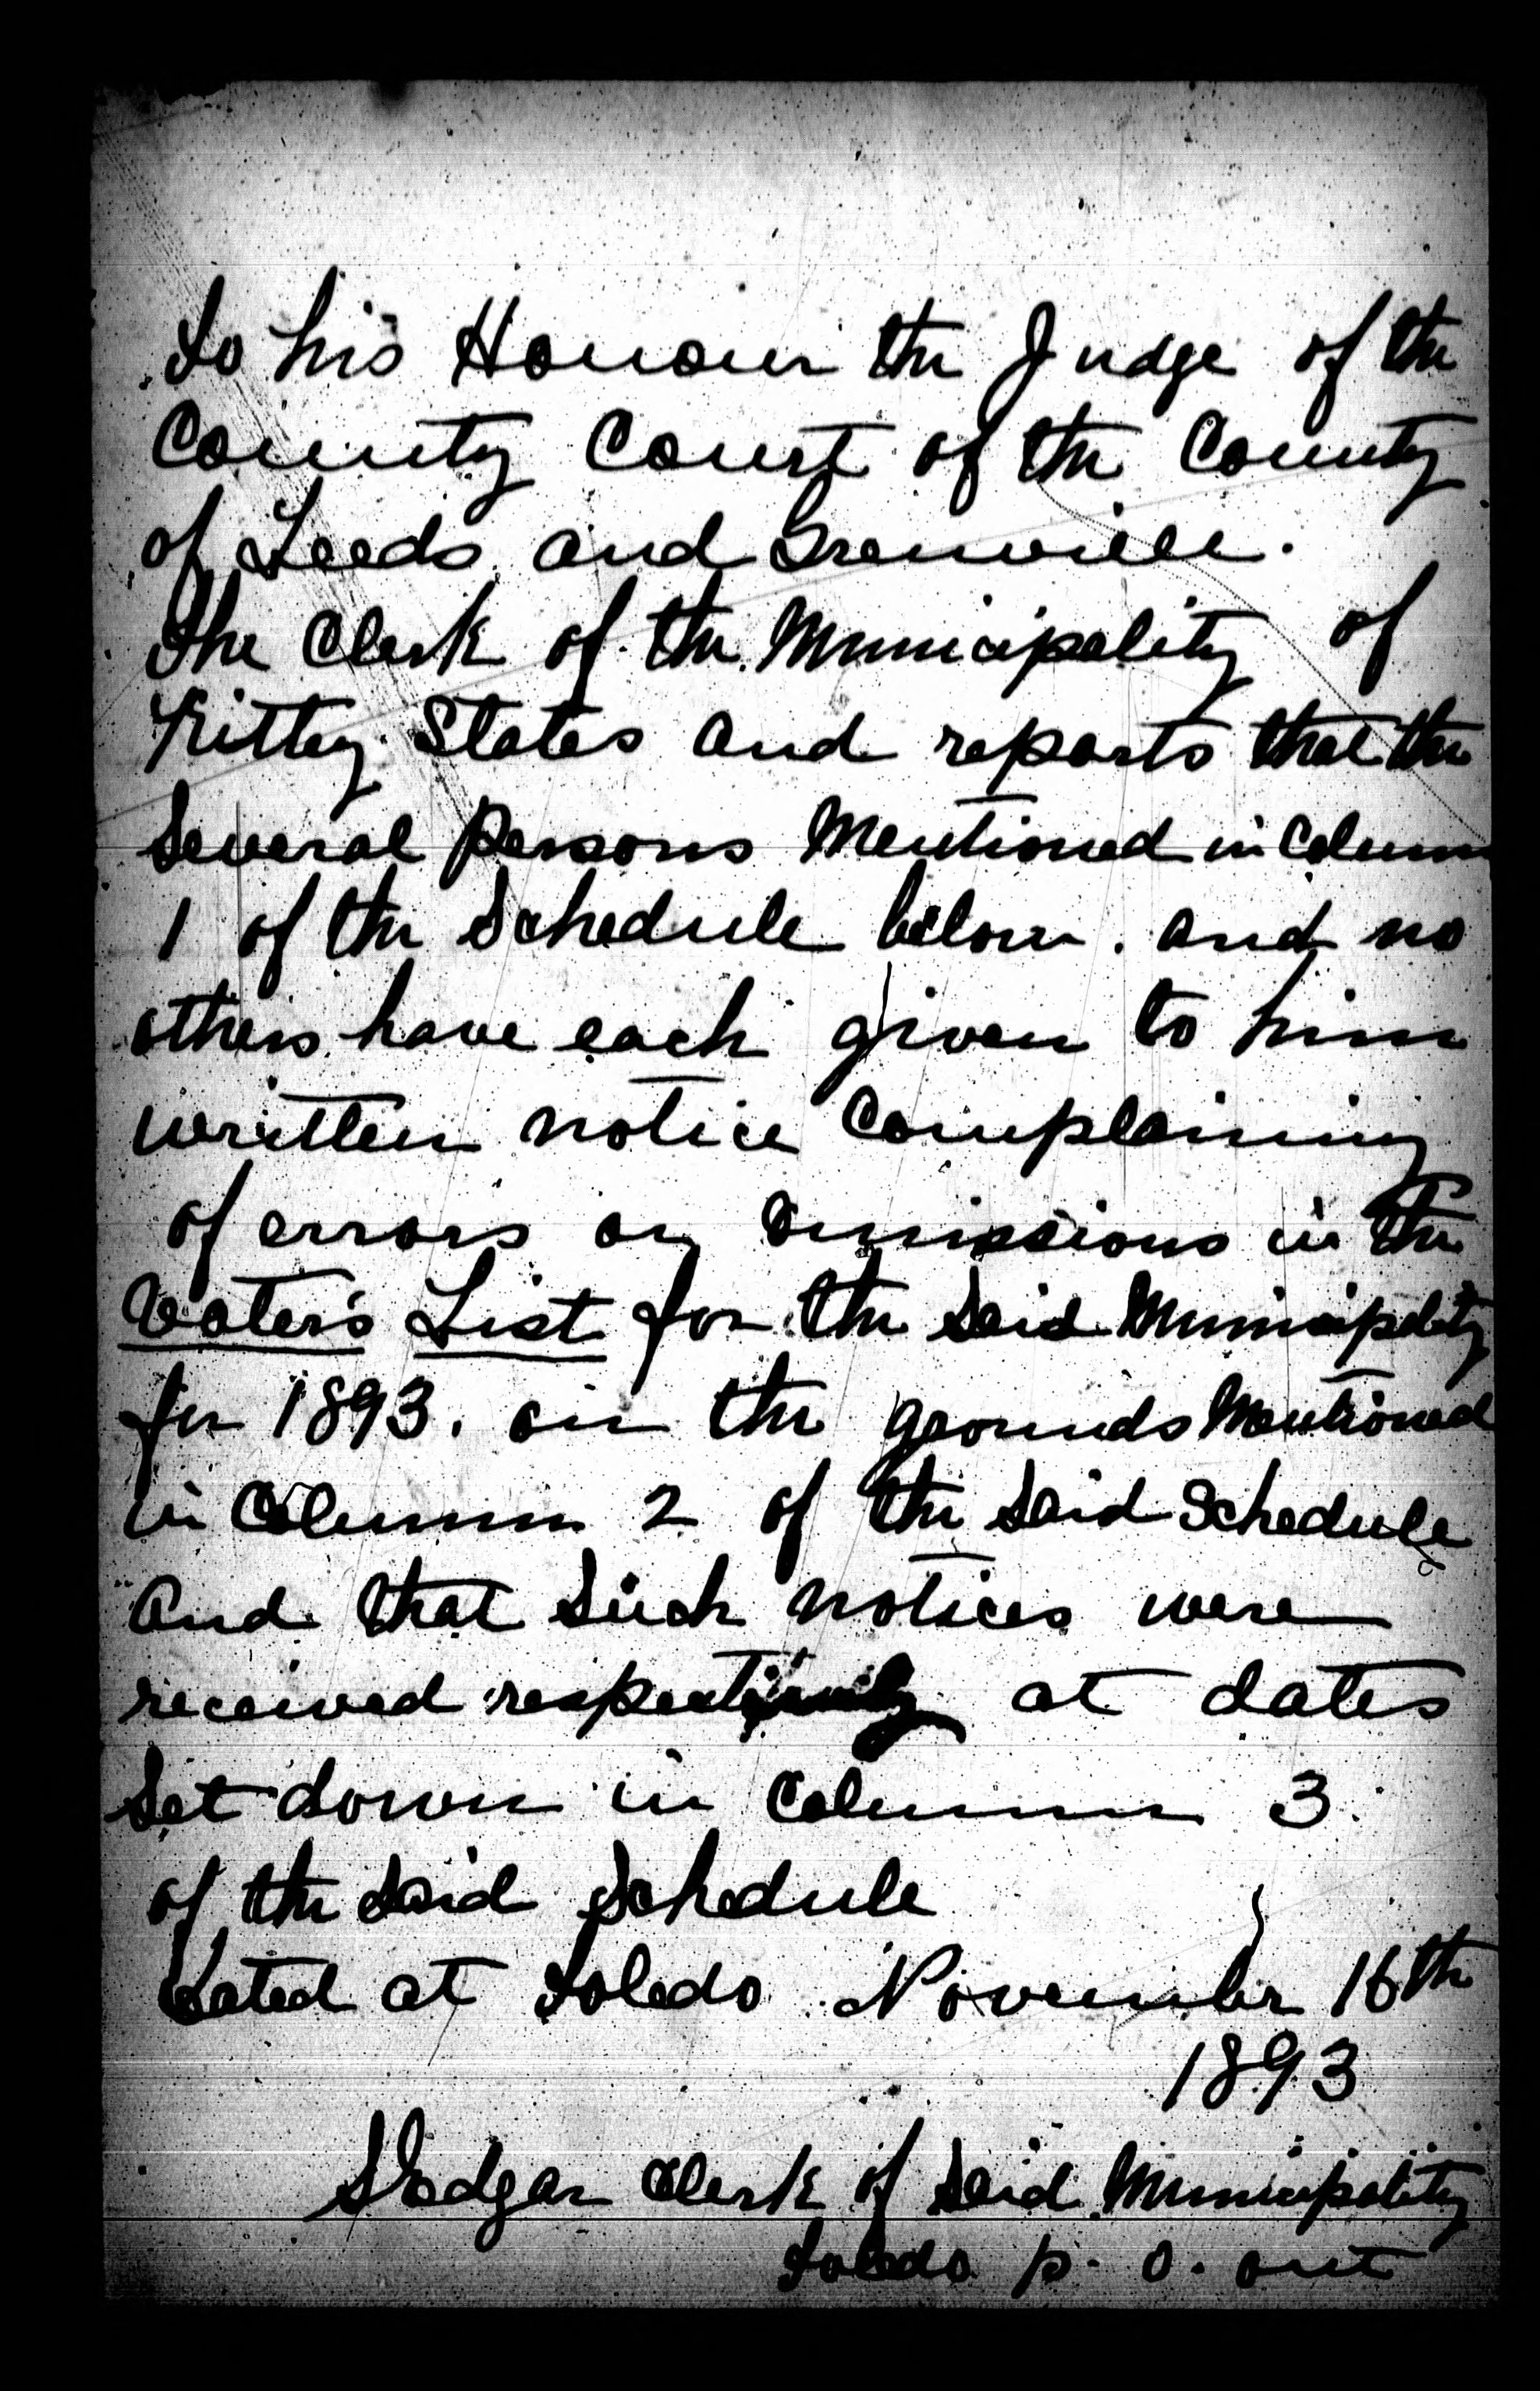 To his Honour the Judge of the
County Court of the County
of Leeds and Grenville.
The Clerk of the Municipality of
Kitley States and reports that the
Several Persons Mentioned in Column
1 of the Schedule below. and no
others have each given to him
written notice Complaining
of errors or Omissions in the
Voter's List for the Said Municipality
for 1893. on the grounds Mentioned
in Column 2 of the Said Schedule
And that Such notices were
received respectively at dates
Set down in Column 3.
of the Said Schedule
Dated at Toledo November 16th
1893
Edgar Clerk of Said Municipality
Toledo p. o. ont